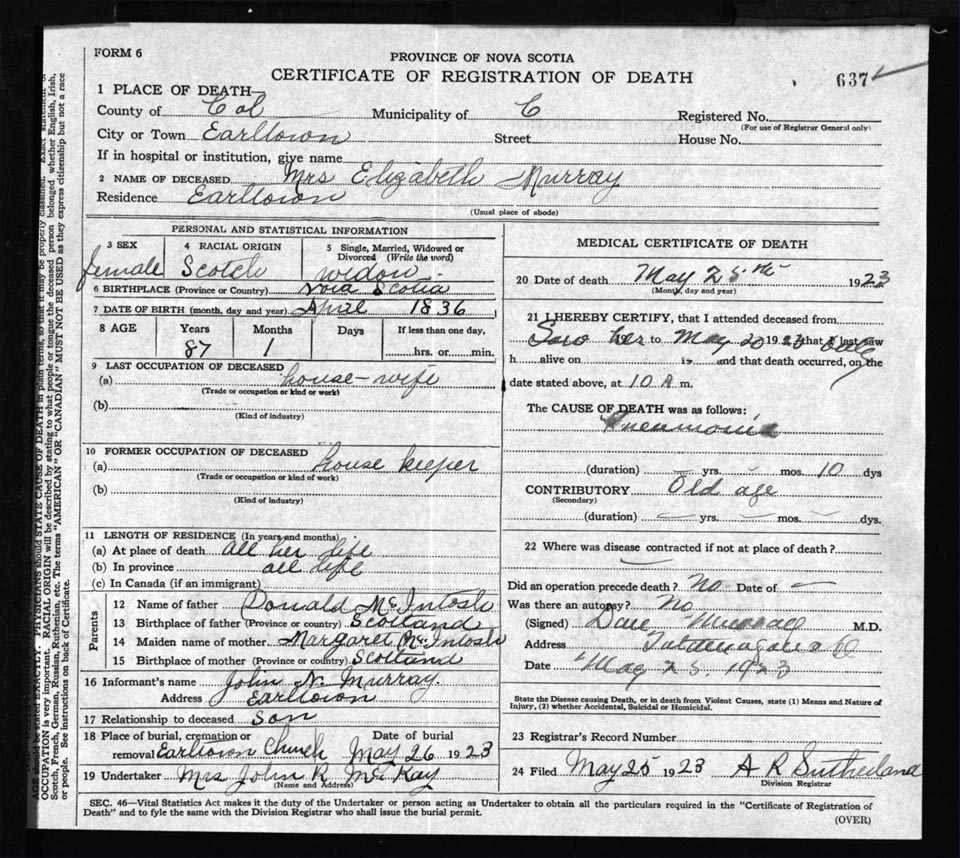 FORM 6
PROVINCE OF NOVA SCOTIA
CERTIFICATE OF REGISTRATION OF DEATH
637
1 PLACE OF DEATH—
County of Col Municipality of C Registered No.
(For use of Registrar General only)
City or Town Earltown Street House No.
If in hospital or institution, give name
2 NAME OF DECEASED Mrs Elizabeth Murray
Residence Earltown
(Usual place of abode)
PERSONAL AND STATISTICAL INFORMATION
3 SEX 4 RACIAL ORIGIN 5 Single, Married, Widowed or Divorced (Write the word)
female Scotch widow
6 BIRTHPLACE (Province or Country) Nova Scotia
7 DATE OF BIRTH (month, day and year) April 1836
8 AGE Years Months Days If less than one day,
87 1 hrs. or min.
9 LAST OCCUPATION OF DECEASED
(a) house-wife
(Trade or occupation or kind or work)
(b)
(Kind of industry)
10 FORMER OCCUPATION OF DECEASED
(a) house keeper
(Trade or occupation or kind of work)
(b)
(Kind of industry)
11 LENGTH OF RESIDENCE (In years and months)
(a) At place of death all her life
(b) In province all life
(c) In Canada (if an immigrant)
Parents
12 Name of father Donald McIntosh
13 Birthplace of father (Province or country) Scotland
14 Maiden name of mother Margaret McIntosh
15 Birthplace of mother (Province or country) Scotland
16 Informant's name John N. Murray.
Address Earltown
17 Relationship to deceased Son
18 Place of burial, cremation or Date of burial
removal Earltown Church May 26 1923
19 Undertaker Mrs John R McKay
(Name and Address)
MEDICAL CERTIFICATE OF DEATH
20 Date of death May 25th 1923
(Month, day and year)
21 I HEREBY CERTIFY, that I attended deceased from
Saw her to May 20 1923 that I last saw
h alive on 19 and that death occurred, on the
date stated above, at 10 A m.
The CAUSE OF DEATH was as follows:
Pneumonia
(duration) yrs. mos. 10 dys
CONTRIBUTORY Old age
(Secondary)
(duration) yrs. mos. dys.
22 Where was disease contracted if not at place of death?
Did an operation precede death? No Date of
Was there an autopsy? No
(Signed) Dan Murray M.D.
Address Tatamagouche
Date May 25. 1923
State the Disease causing Death, or in death from Violent Causes, state (1) Means and Nature of
Injury, (2) whether Accidental, Suicidal or Homicidal.
23 Registrar's Record Number
24 Filed May 25 1923 A R Sutherland
Division Registrar
SEC. 46—Vital Statistics Act makes it the duty of the Undertaker or person acting as Undertaker to obtain all the particulars required in the "Certificate of Registration of
Death" and to fyle the same with the Division Registrar who shall issue the burial permit.
(OVER)
EXACTLY. PHYSICIANS should STATE CAUSE OF DEATH in plain terms, so that it may be properly classified. Exact statement of
OCCUPATION is very important. RACIAL ORIGIN will be described by stating to what people or tongue the deceased person belonged whether English, Irish,
Scotch, French, German, Russian, Ruthenian, etc. The terms "AMERICAN" OR "CANADIAN" MUST NOT BE USED as they express citizenship but not a race
or people. See instructions on back of Certificate.